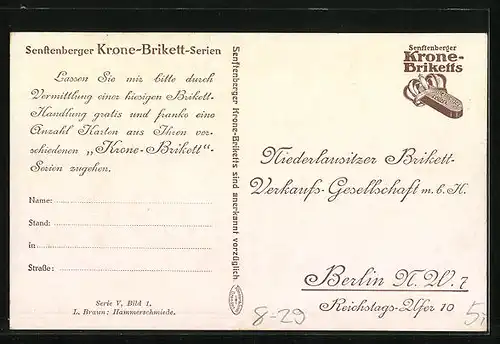 Senftenberger Krone-Brikett-Serien
Lassen Sie mir bitte durch
Vermittlung einer hiesigen Brikett-
Handlung gratis und franko eine
Anzahl Karten aus Ihren ver-
schiedenen „Krone-Brikett"-
Serien zugehen.
Name:
Stand:
in
Straße:
Serie V, Bild 1.
L. Braun: Hammerschmiede.
Senftenberger Krone-Briketts sind anerkannt vorzüglich
Senftenberger
Krone-
Briketts
Niederlausitzer Brikett-
Verkaufs-Gesellschaft m. b. H.
Berlin N. W. 7
Reichstags-Ufer 10
8-29